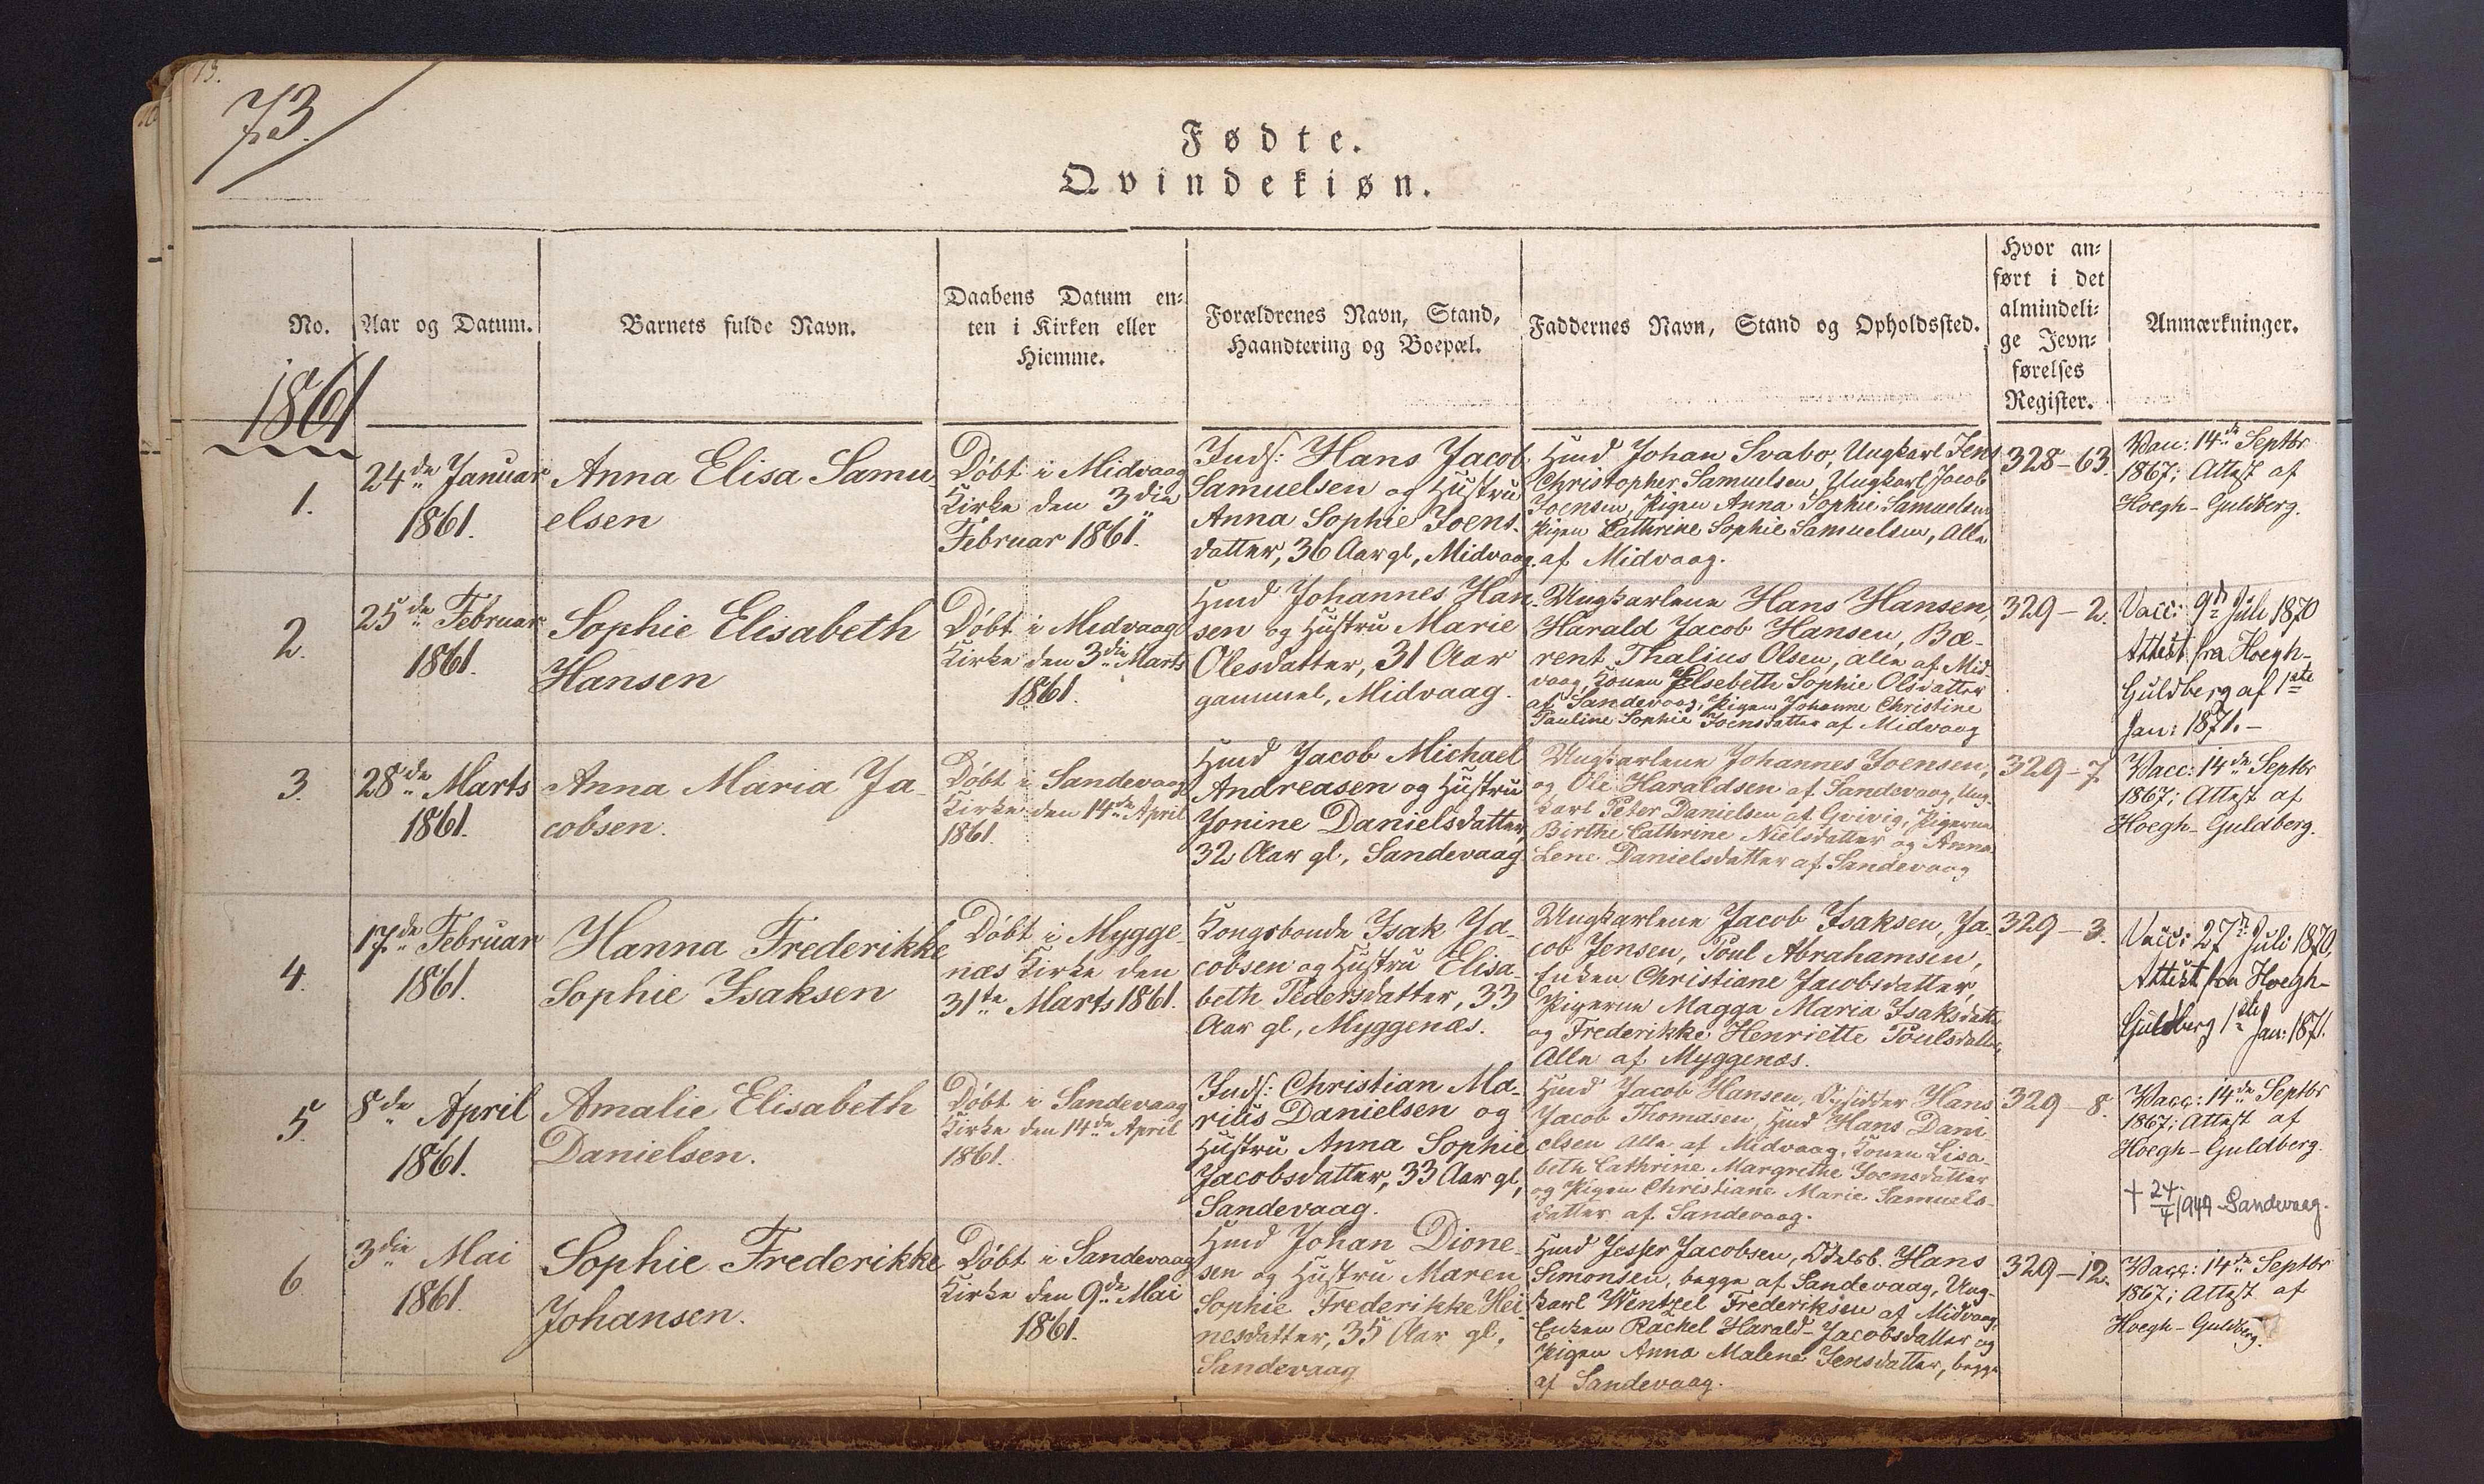 73.
Fødte.
Qvindekiøn.
No.
Aar og Datum.
Barnets fulde Navn.
Daabens Datum en-
ten i Kirken eller
Hiemme.
Forældrenes Navn, Stand,
Haandtering og Boepæl.
Faddernes Navn, Stand og Opholdssted.
Hvor an-
ført i det
almindeli-
ge Jevn-
førelses
Register.
Anmærkninger.
1861
1.
24de Januar
1861.
Anna Elisa Samu
elsen
Døbt i Midvaag
Kirke den 3die
Februar 1861.
Inds: Hans Jacob
Samuelsen og Hustru
Anna Sophie Joens-
datter, 36 Aar gl, Midvaag.
Hmd Johan Svabo, Ungkarl Jens
Christopher Samuelsen, Ungkarl Jacob
Joensen, Pigen Anna Sophie Samuelsen
Pigen Cathrine Sophie Samuelsen, Alle
af Midvaag.
328-63.
14de Septbr
1867; Attest af
Hoegh-Guldberg.
2.
25de Februar
1861.
Sophie Elisabeth
Hansen
Døbt i Midvaag
Kirke den 3die Marts
1861.
Hmd Johannes Han-
sen og Hustru Marie
Olesdatter, 31 Aar
gammel, Midvaag.
Ungkarlene Hans Hansen,
Harald Jacob Hansen, Bæ-
rent Thalius Olsen, alle af Mid-
vaag, Konen Elsebeth Sophie Olsdatter
af Sandevaag, Pigen Johanne Christine
Pauline Sophie Joensdatter af Midvaag
329-2.
Vacc: 9de Juli 1870
Attest fra Hoegh-
Guldberg af 1ste
Jan: 1871.-
3.
28de Marts
1861.
Anna Maria Ja-
cobsen.
Døbt i Sandevaag
Kirke den 14de April
1861.
Hmd Jacob Michael
Andreasen og Hustru
Jonine Danielsdatter,
32 Aar gl, Sandevaag
Ungkarlene Johannes Joensen,
og Ole Haraldsen af Sandevaag, Ung-
karl Peter Danielsen af Qvivig, Pigerne
Birthe Cathrine Nielsdatter og Anna
Lene Danielsdatter af Sandevaag
329-7.
Vacc: 14de Septbr
1867; Attest af
Hoegh-Guldberg.
4.
17de Februar
1861.
Hanna Frederikke
Sophie Isaksen
Døbt i Mygge-
næs Kirke den
31te Marts 1861.
Kongsbonde Isak Ja-
cobsen og Hustru Elisa-
beth Pedersdatter, 33
Aar gl, Myggenæs.
Ungkarlene Jacob Isaksen, Ja-
cob Jensen, Poul Abrahamsen,
Enken Christiane Jacobsdatter,
Pigerne Magga Maria Isaksdatter
og Frederikke Henriette Poulsdatter,
Alle af Myggenæs.
329-3.
Vacc: 27de Juli 1870,
Attest fra Hoegh-
Guldberg 1ste Jan: 1871.
5.
8de April
1861.
Amalie Elisabeth
Danielsen.
Døbt i Sandevaag
Kirke den 14de April
1861.
Inds: Christian Ma-
rius Danielsen og
Hustru Anna Sophie
Jacobsdatter, 33 Aar gl,
Sandevaag.
Hmd Jacob Hansen, Opsidder Hans
Jacob Thomasen, Hmd Hans Dani-
elsen Alle af Midvaag, Konen Lisa-
beth Cathrine Margrethe Joensdatter
og Pigen Christiane Marie Samuels-
datter af Sandevaag.
329-8.
Vacc: 14de Septbr
1867; Attest af
Hoegh-Guldberg.
+ 24/4 1944 Sandevaag.
6.
3die Mai
1861.
Sophie Frederikke
Johansen.
Døbt i Sandevaag
Kirke den 9de Mai
1861.
Hmd Johan Dione-
sen og Hustru Maren
Sophie Frederikke Hei-
nesdatter, 35 Aar gl,
Sandevaag
Hmd Jesper Jacobsen, Odelsb. Hans
Simonsen, begge af Sandevaag, Ung-
karl Wentzel Frederiksen af Midvaag,
Enken Rachel Harald-Jacobsdatter og
Pigen Anna Malene Jensdatter, begge
af Sandevaag.
329-12.
Vacc: 14de Septbr
1867; Attest af
Hoegh-Guldberg.